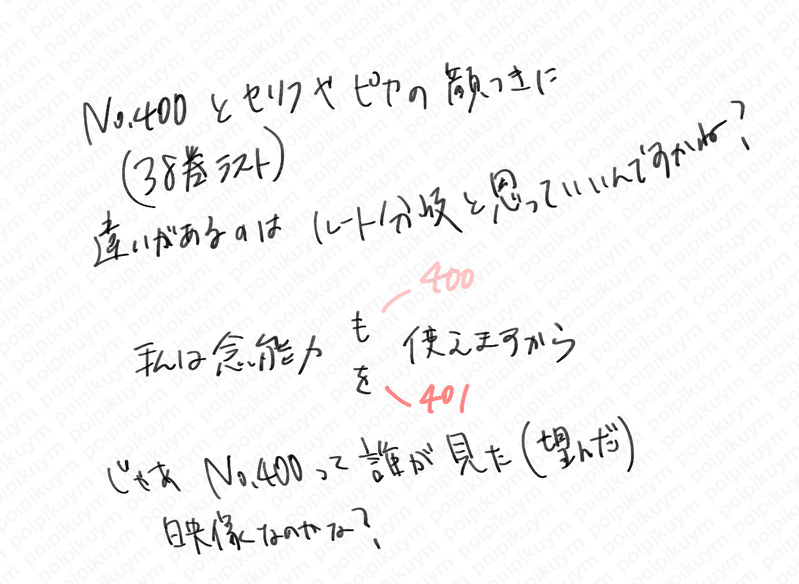 No.400 とセリフやピカの顔つきに
(38巻ラスト)
違いがあるのは ルート分岐と思っていいんですかね?
400
私は念能力も使えますから
を
401
じゃあ No.400って誰が見た(望んだ)
映像なのかな?
poipikuym